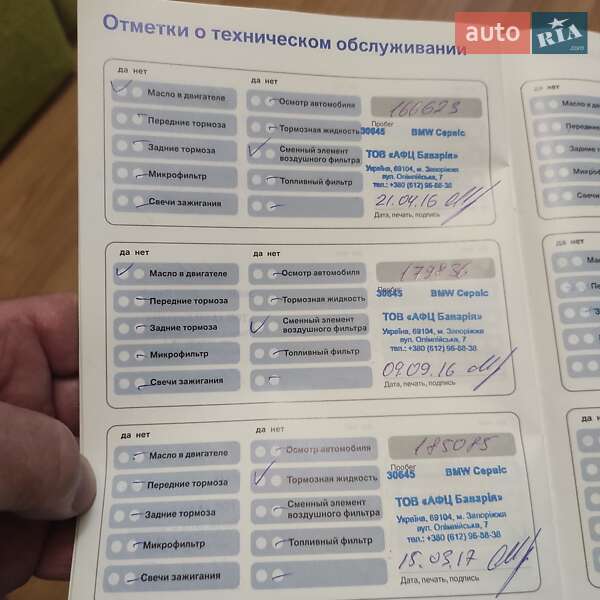 auto RIA .com
Отметки о техническом обслуживании
да нет
да нет
Масло в двигателе
Передние тормоза
Задние тормоза
Микрофильтр
Свечи зажигания
Осмотр автомобиля
Тормозная жидкость
Сменный элемент
воздушного фильтра
Топливный фильтр
166623
Пробег
30645 BMW Сервіс
ТОВ «АФЦ Баварія»
Україна, 69104, м. Запоріжжя
вул. Олімпійська, 7
тел.: +380 (612) 96-88-38
21.04.16
Дата, печать, подпись
да нет
да нет
Масло в двигателе
Передние тормоза
Задние тормоза
Микрофильтр
Свечи зажигания
Осмотр автомобиля
Тормозная жидкость
Сменный элемент
воздушного фильтра
Топливный фильтр
179836
Пробег
30645 BMW Сервіс
ТОВ «АФЦ Баварія»
Україна, 69104, м. Запоріжжя
вул. Олімпійська, 7
тел.: +380 (612) 96-88-38
09.09.16
Дата, печать, подпись
да нет
да нет
Масло в двигателе
Передние тормоза
Задние тормоза
Микрофильтр
Свечи зажигания
Осмотр автомобиля
Тормозная жидкость
Сменный элемент
воздушного фильтра
Топливный фильтр
185085
Пробег
30645 BMW Сервіс
ТОВ «АФЦ Баварія»
Україна, 69104, м. Запоріжжя
вул. Олімпійська, 7
тел.: +380 (612) 96-88-38
15.03.17
Дата, печать, подпись
да нет
Масло в д
Передние
Задние то
Микрофил
Свечи заж
да нет
да нет